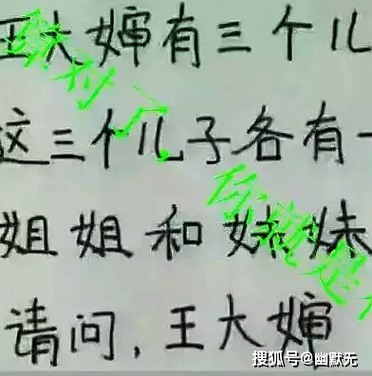 王大婶有三个儿
这三个儿子各有一
姐姐和妹妹
请问,王大婶
搜狐号@幽默无